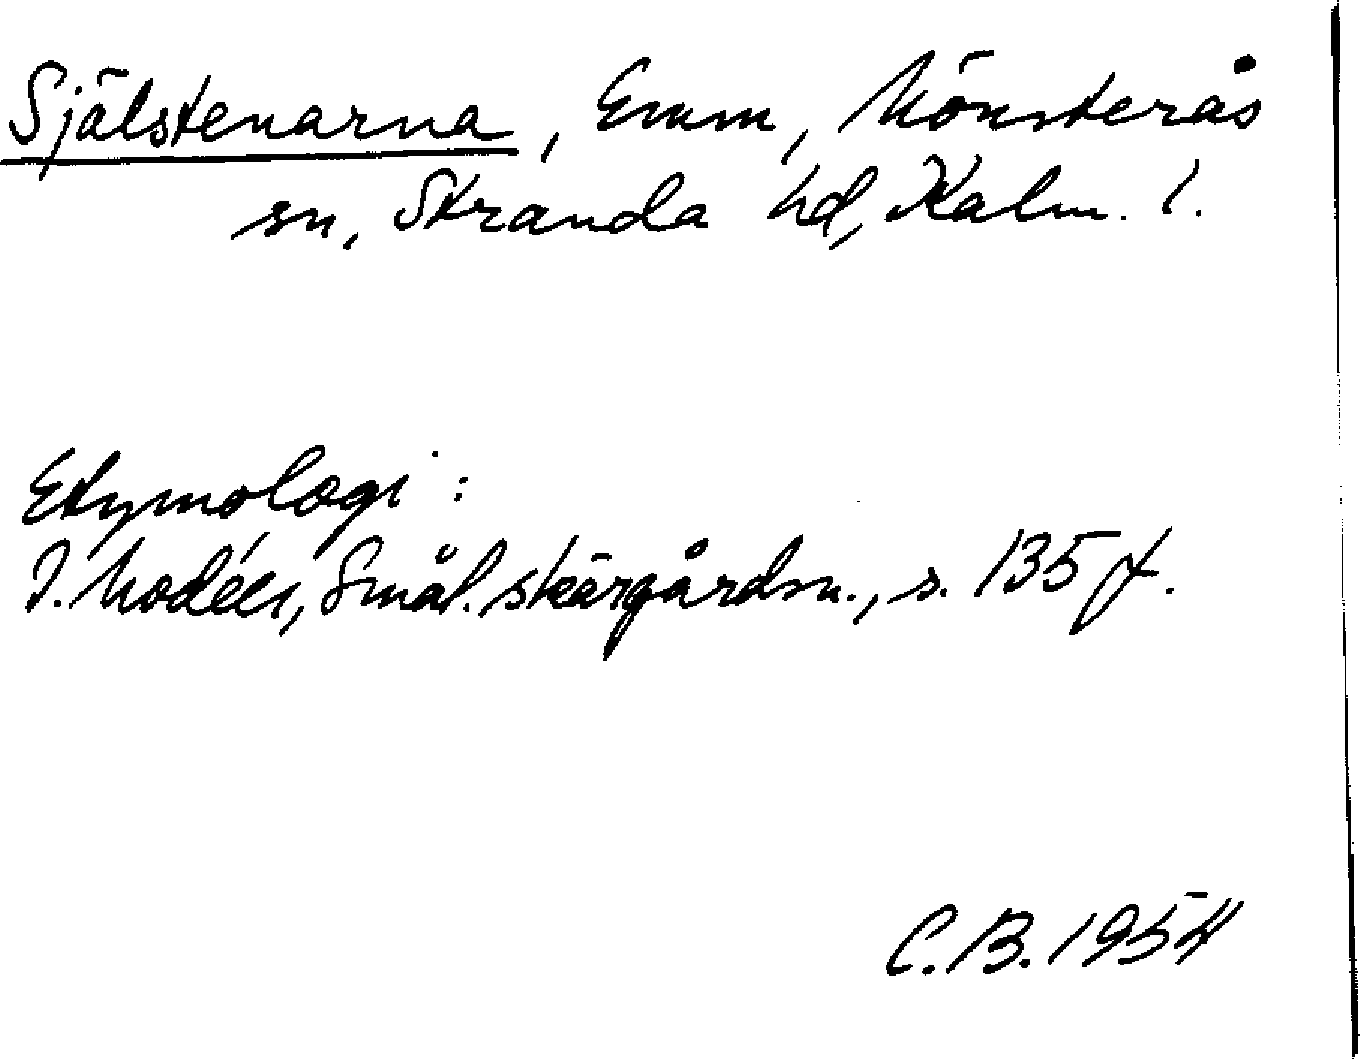 Själstenarna, Emm, Mönsterås
sn, Stranda hd, Kalm. l.
Etymologi:
I. Modéer, Smål. skärgårdsn., s. 135 f.
C. B. 1954